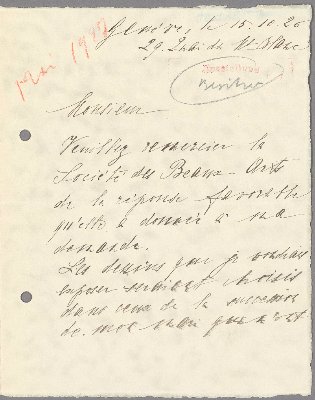 Genève, le 15.10.26
29. Quai du Mt Blanc
mai 1927
Monsieur
Veuillez remercier la
Société des Beaux-Arts
de la réponse favorable
qu'elle a donnée à ma
demande.
Les dessins que je voudrais
exposer seraient choisis
dans ceux de la succession
de mon mari qui n'ont